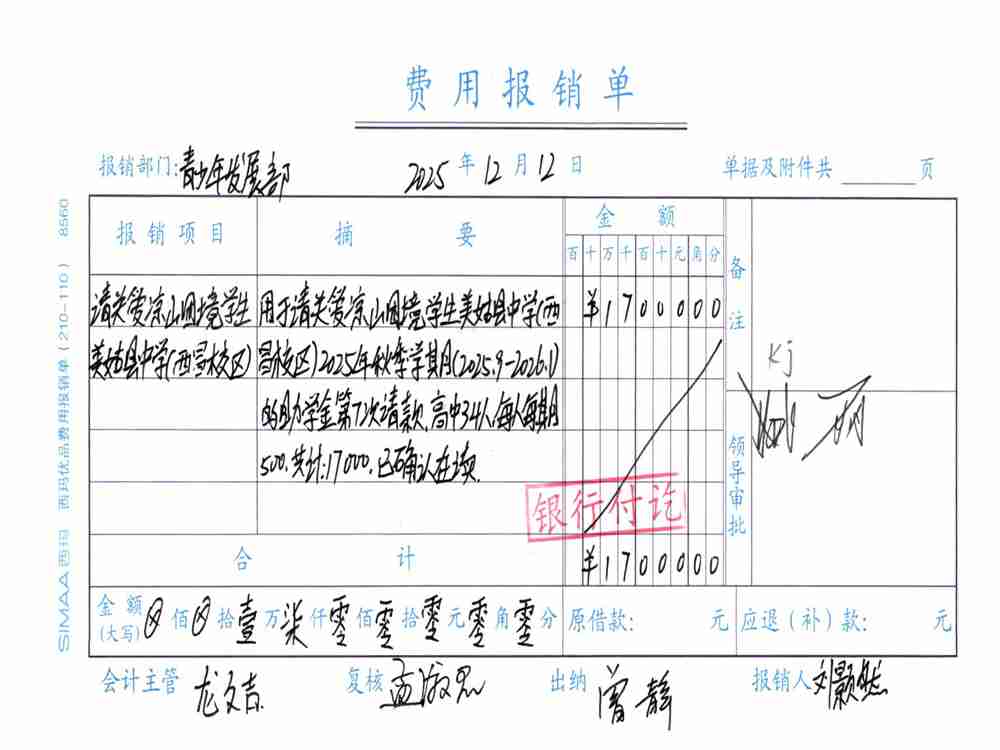 费用报销单
报销部门:青少年发展部 2025年12月12日 单据及附件共 页
报销项目 摘要 金额 备注
百十万千百十元角分
请关爱凉山困境学生 用于请关爱凉山困境学生美姑县中学(西 ¥1700000
美姑县中学(西昌校区) 昌校区)2025年秋季学期(2025.9-2026.1)
Kj
的助学金第7次请款,高中34人,每人每期
500.共计:17000.已确认在读.
领导审批
银行付讫
合计 ¥1700000
金额(大写) 佰 拾壹万柒仟零佰零拾零元零角零分 原借款: 元 应退(补)款: 元
会计主管 龙文吉 复核 孟淑思 出纳 曾静 报销人 刘颢然
SIMAA西玛 西玛优品费用报销单(210-110) 8560